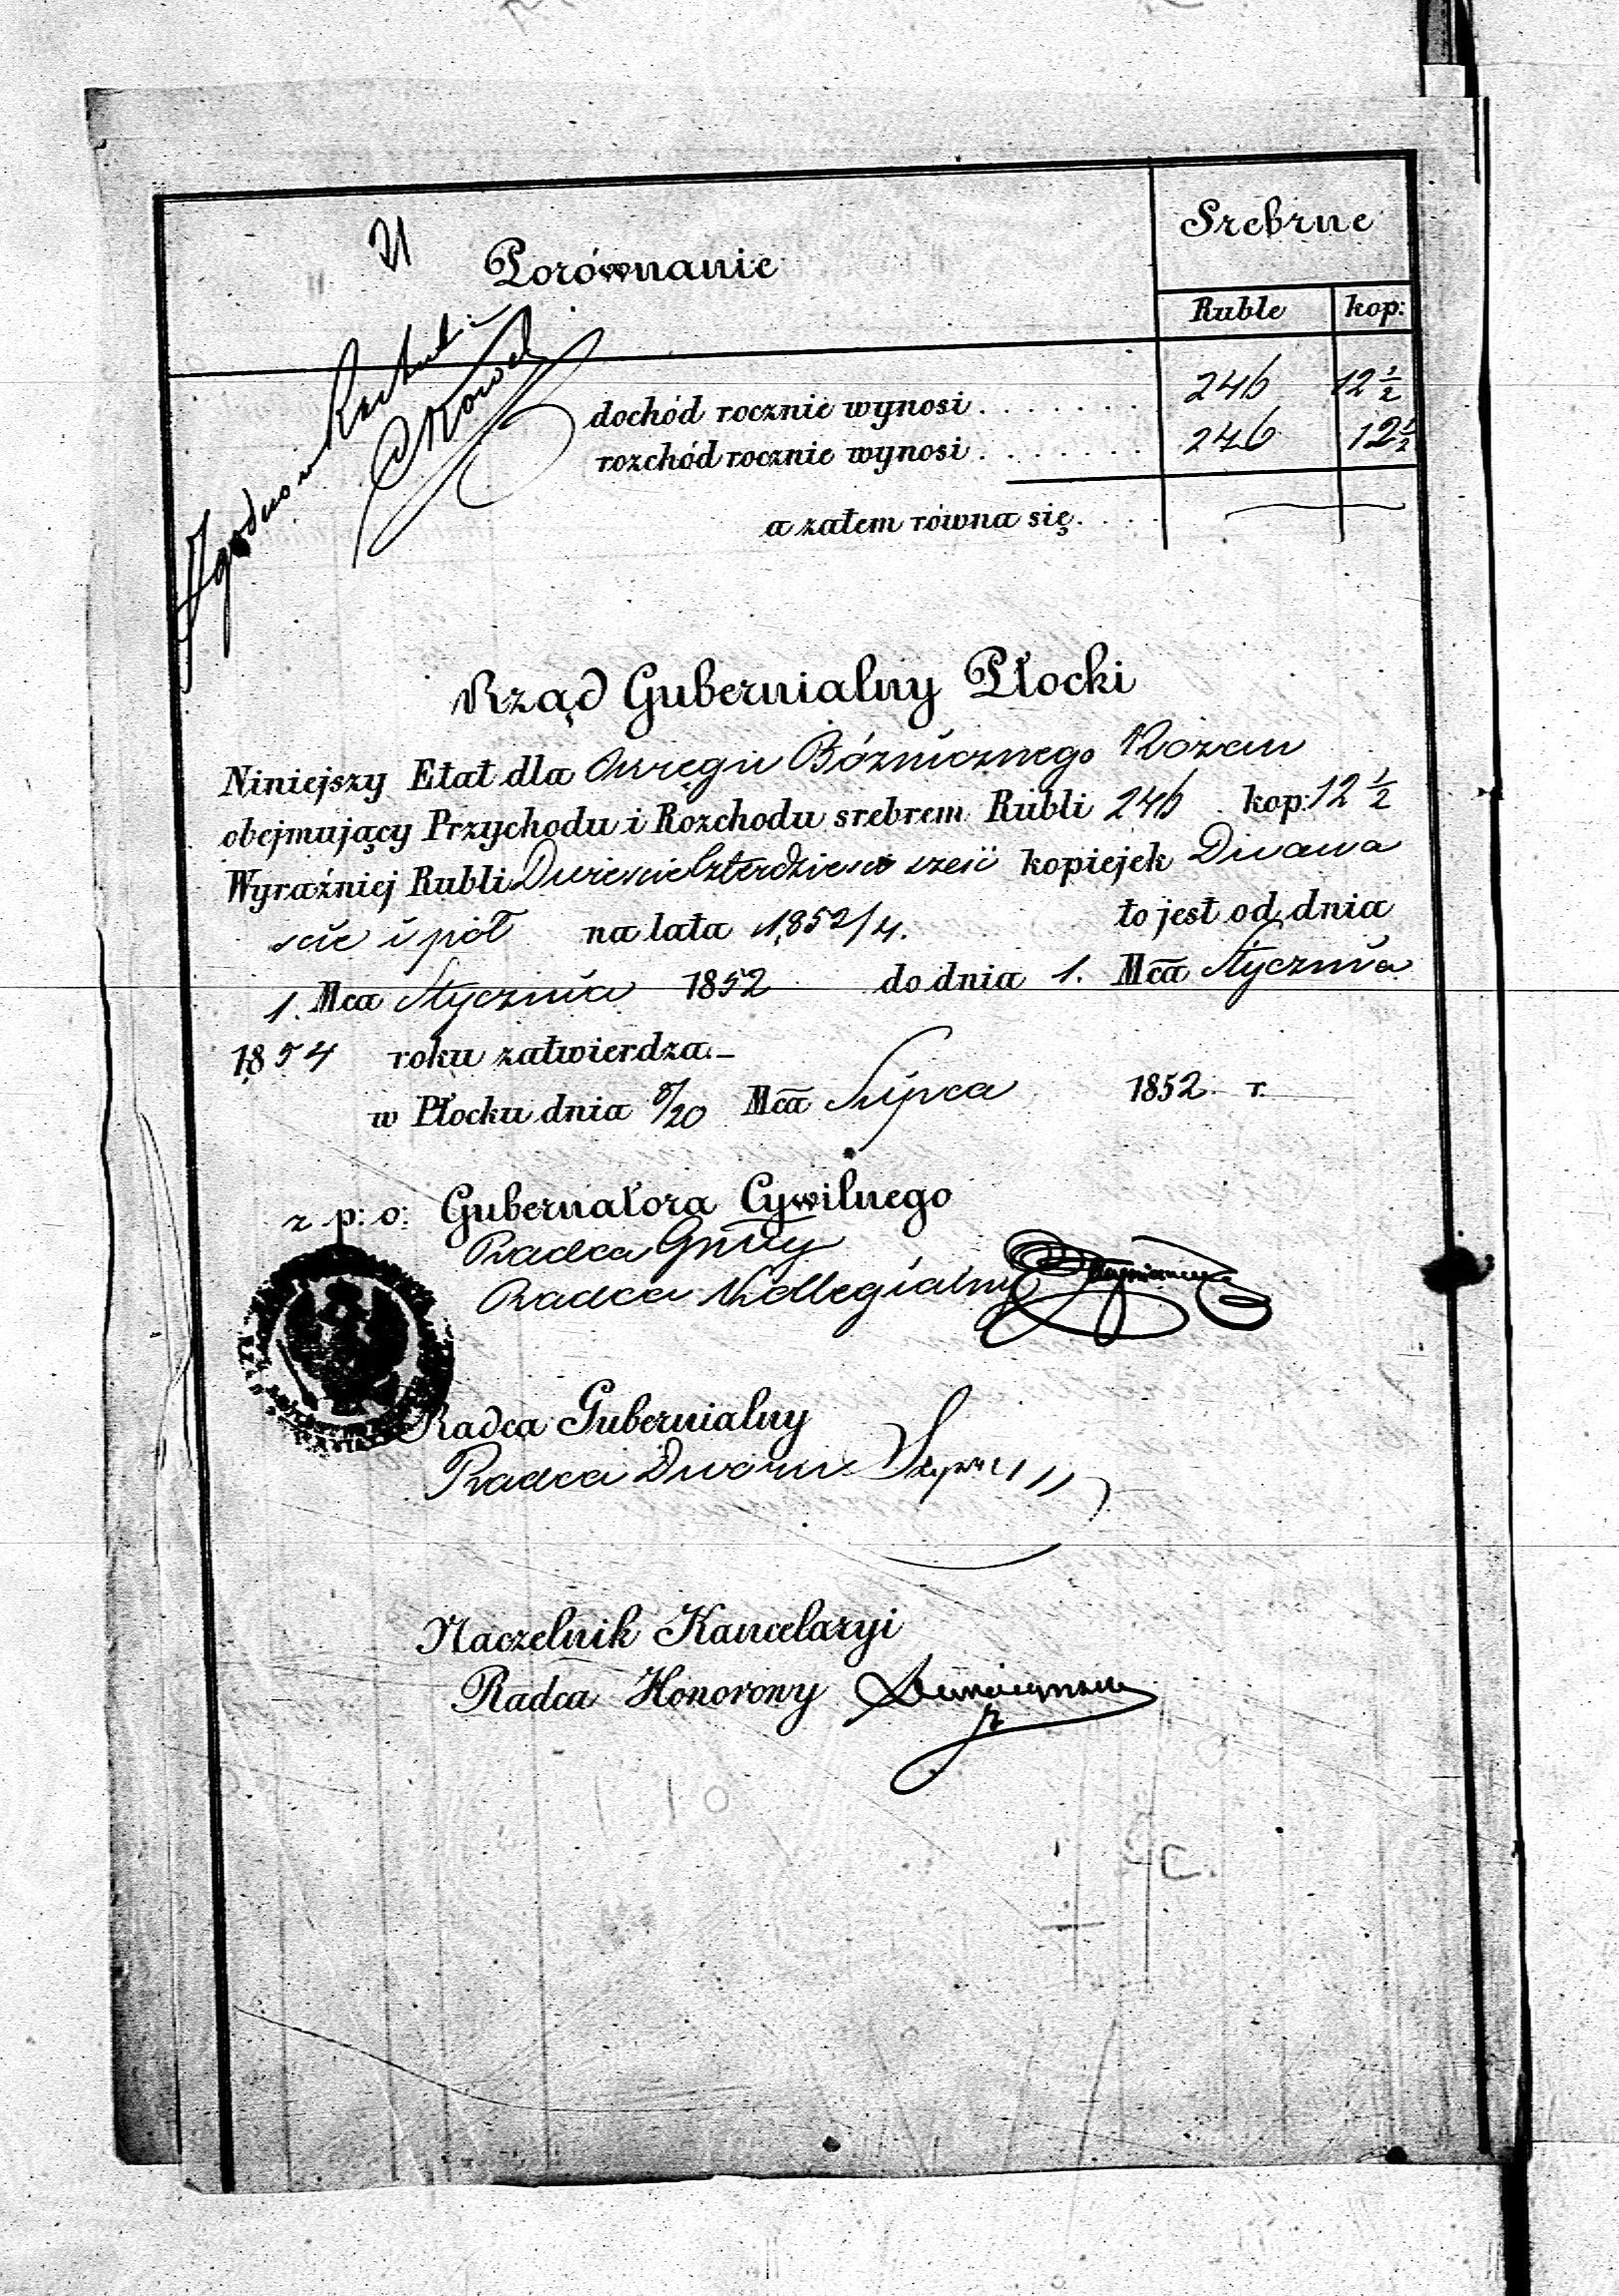 Srebrne
Porównanie
Ruble kop:
dochód rocznie wynosi . . . . . . . 246 12 ½
rozchód rocznie wynosi . . . . . . . 246 12 ½
a zatem równa się. . . .
Rząd Gubernialny Płocki
Niniejszy Etat dla Okręgu Bóżnicznego Rożan
obejmujący Przychodu i Rozchodu srebrem Rubli 246 kop: 12 ½
Wyraźniej Rubli Dwieście Czterdzieści sześć kopiejek Dwana
ście i pół na lata 1852/4. to jest od dnia
1. Mca Stycznia 1852 do dnia 1. Mca Stycznia
1854 roku zatwierdza.–
w Płocku dnia 8/20 Mca Lipca 1852 r.
z p: o: Gubernatora Cywilnego
Radca Gub̃y
Radca Kollegialny
Radca Gubernialny
Radca Dworu
Naczelnik Kancelaryi
Radca Honorony